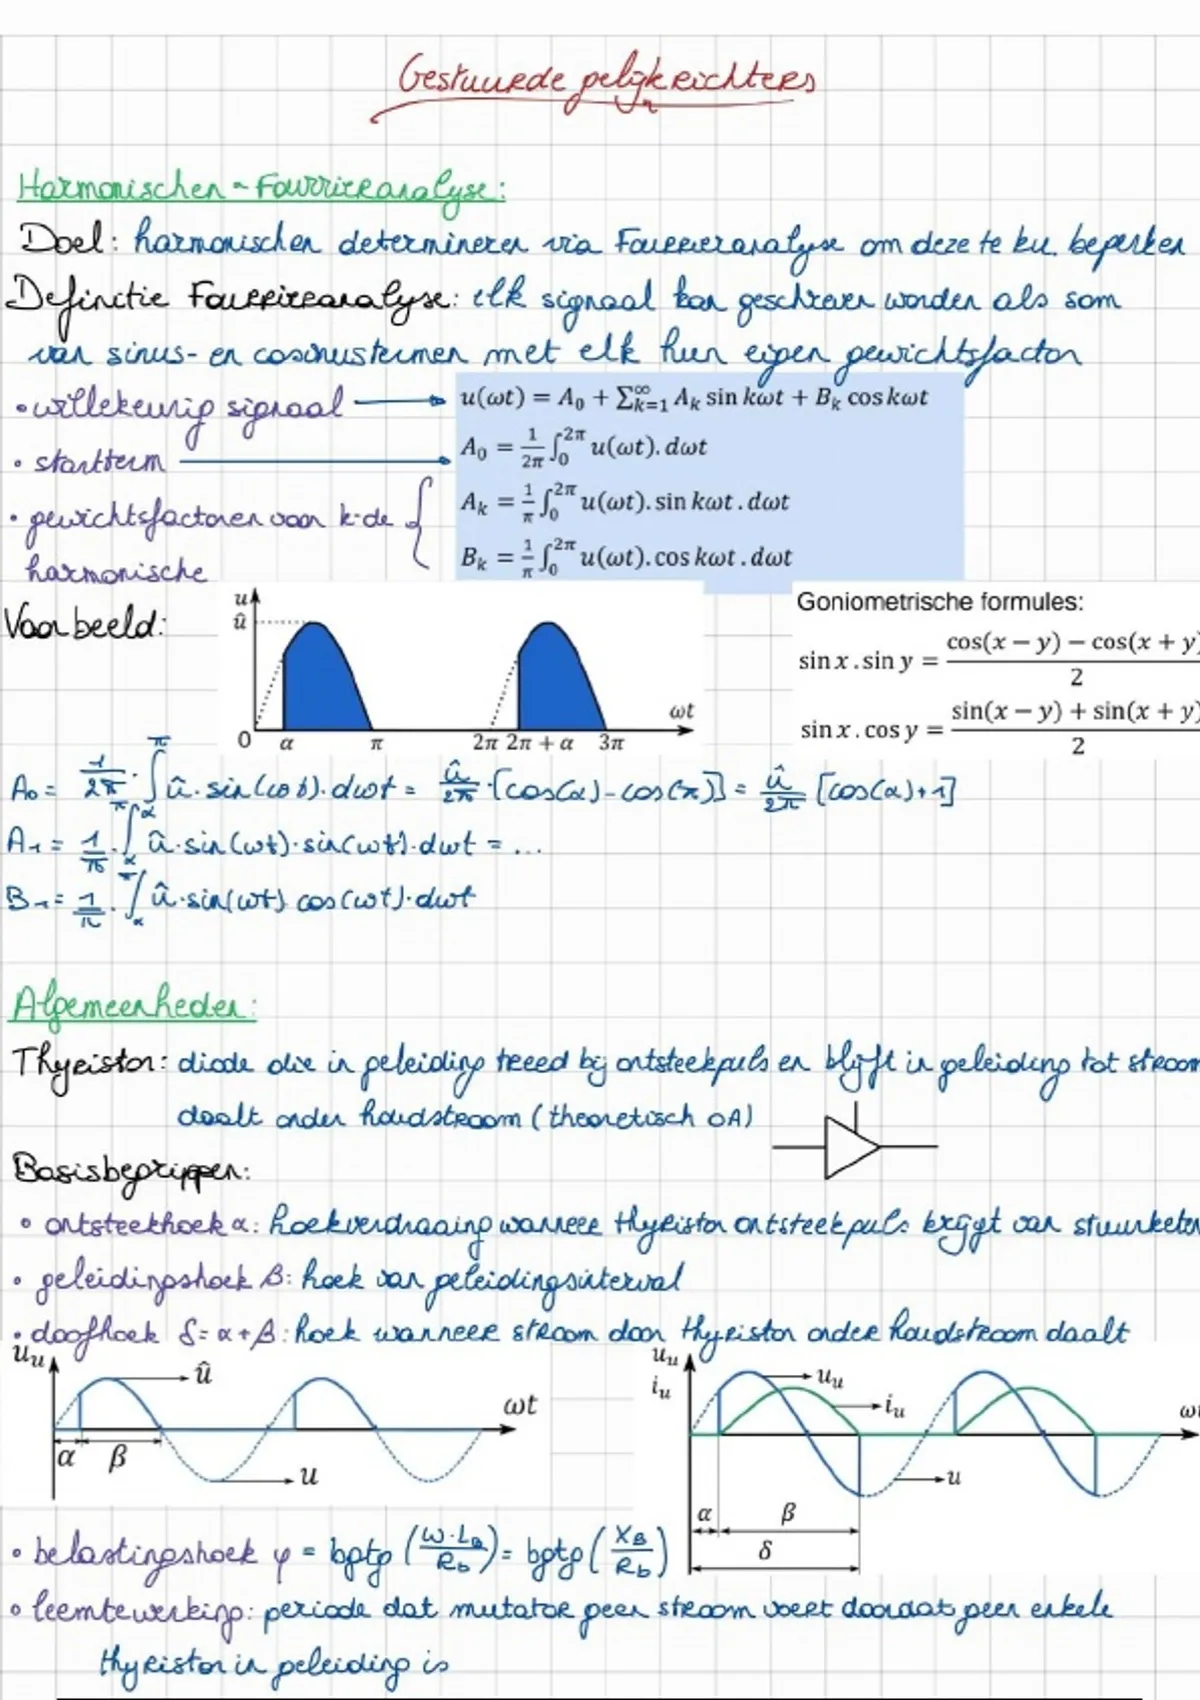 Gestuurde gelijkrichters
Harmonischen - Fourrieranalyse:
Doel: harmonischen determineren via Fourieranalyse om deze te ku. beperken
Definitie Fourrieranalyse: elk signaal kan geschreven worden als som
van sinus- en cosinustermen met elk hun eigen gewichtsfactor
• willekeurig signaal → u(ωt) = A₀ + ∑ₖ₌₁^∞ Aₖ sin kωt + Bₖ cos kωt
• startterm → A₀ = 1/2π ∫₀^2π u(ωt). dωt
• gewichtsfactoren voor k-de { Aₖ = 1/π ∫₀^2π u(ωt). sin kωt . dωt
harmonische Bₖ = 1/π ∫₀^2π u(ωt). cos kωt . dωt
Voorbeeld:
u
û
ωt
0 α π 2π 2π + α 3π
Goniometrische formules:
sin x . sin y = (cos(x − y) − cos(x + y))/2
sin x . cos y = (sin(x − y) + sin(x + y))/2
A₀ = 1/2π · ∫_α^π û · sin(ωt) · dωt = û/2π · [cos(α) - cos(π)] = û/2π [cos(α) + 1]
A₁ = 1/π · ∫_α^π û · sin(ωt) · sin(ωt) · dωt = ...
B₁ = 1/π · ∫_α^π û · sin(ωt) cos(ωt) · dωt
Algemeenheden:
Thyristor: diode die in geleiding treed bij ontsteekpuls en blijft in geleiding tot stroom
daalt onder houdstroom (theoretisch 0A)
Basisbegrippen:
• ontsteekhoek α: hoekverdraaing wanneer thyristor ontsteekpuls krijgt van stuurketen
• geleidingshoek β: hoek van geleidingsinterval
• doofhoek δ = α + β: hoek wanneer stroom door thyristor onder houdstroom daalt
uᵤ
û
ωt
α β
u
uᵤ
iᵤ
uᵤ
iᵤ
ωt
u
α β
δ
• belastingshoek φ = bgtg (ω·L_B/R_b) = bgtg (X_B/R_b)
• leemtewerking: periode dat mutator geen stroom voert doordat geen enkele
thyristor in geleiding is